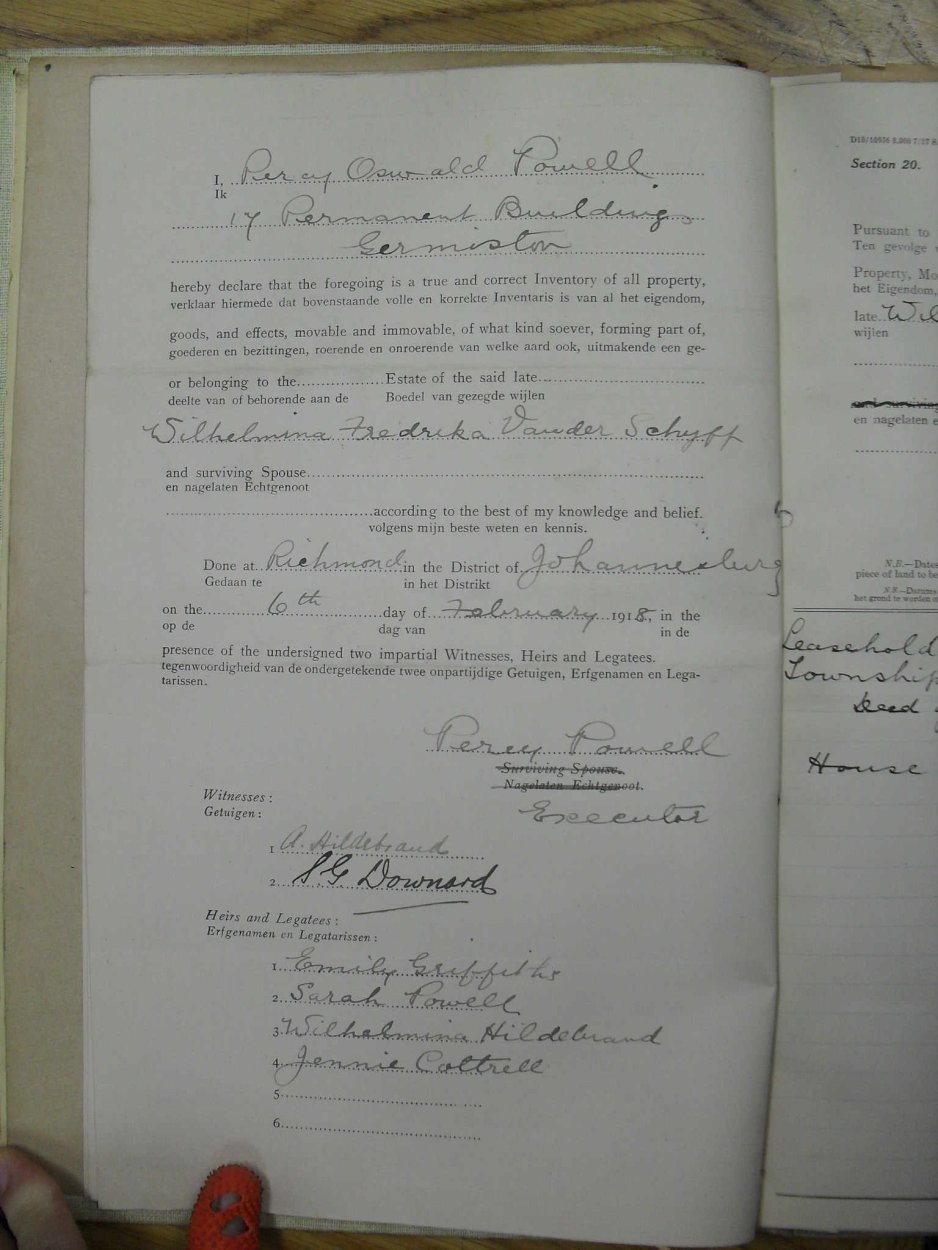 I, Percy Oswald Powell
Ik
17 Permanent Buildings
Germiston
hereby declare that the foregoing is a true and correct Inventory of all property,
verklaar hiermede dat bovenstaande volle en korrekte Inventaris is van al het eigendom,
goods, and effects, movable and immovable, of what kind soever, forming part of,
goederen en bezittingen, roerende en onroerende van welke aard ook, uitmakende een ge-
or belonging to the................Estate of the said late..............................
deelte van of behorende aan de Boedel van gezegde wijlen
Wilhelmina Fredrika Van der Schyff
and surviving Spouse..............................
en nagelaten Echtgenoot
..............................according to the best of my knowledge and belief.
volgens mijn beste weten en kennis.
Done at Richmond in the District of Johannesburg
Gedaan te in het Distrikt
on the 6th day of February 1918, in the
op de dag van in de
presence of the undersigned two impartial Witnesses, Heirs and Legatees.
tegenwoordigheid van de ondergetekende twee onpartijdige Getuigen, Erfgenamen en Lega-
tarissen.
Percy Powell
Surviving Spouse.
Nagelaten Echtgenoot.
Executor
Witnesses:
Getuigen:
1 A. Hildebrand
2 S G Downard
Heirs and Legatees:
Erfgenamen en Legatarissen:
1. Emily Griffiths
2. Sarah Powell
3. Wilhelmina Hildebrand
4. Jennie Cottrell
5.
6.
Section 20.
Pursuant to
Ten gevolge
Property, Mo
het Eigendom,
late Wil
wijlen
and surviving
en nagelaten e
N.B.—Dates
piece of land to be
N.B.—Datums
het grond te worden o
Leasehold
Township
Deed
House